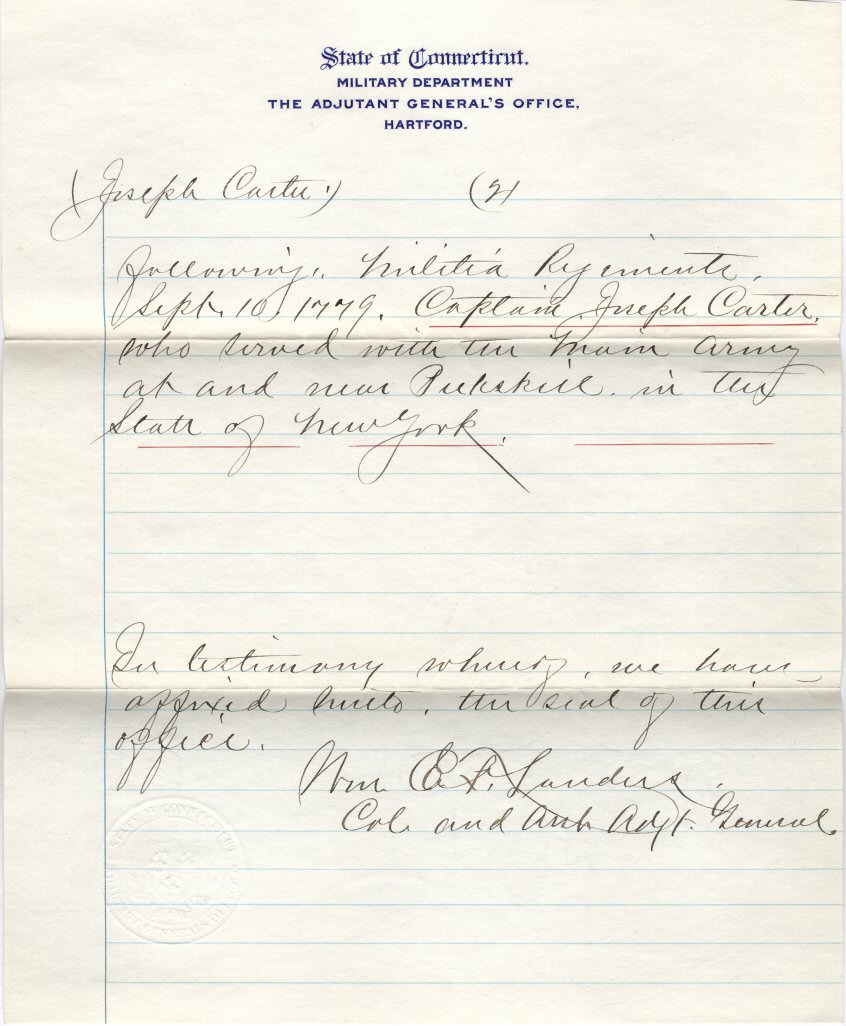 State of Connecticut.
MILITARY DEPARTMENT
THE ADJUTANT GENERAL'S OFFICE,
HARTFORD.
(Joseph Carter.) (2)
following, Militia Regiments,
Sept. 10, 1779. Captain Joseph Carter,
who served with the Main Army
at and near Peekskill in the
State of New York.
In testimony whereof, we have
affixed hereto, the seal of this
office.
Wm. E. F. Landers.
Col. and Asst. Adjt. General.
STATE OF CONNECTICUT
ADJUTANT GENERAL'S OFFICE